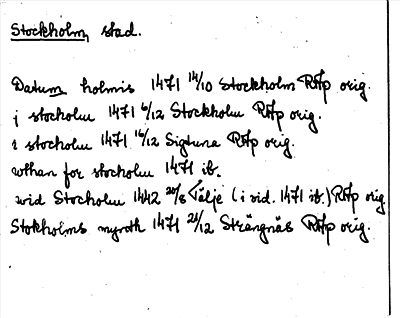 Stockholm, stad.
Datum holmis 1471 14/10 Stockholm RAp orig.
j stocholm 1471 6/12 Stockholm RAp orig.
i stocholm 1471 16/12 Sigtuna RAp orig.
wthan for stocholm 1471 ib.
wid Stocholm 1442 20/8 Tälje (i vid. 1471 ib.) RAp orig
Stokholms mynth 1471 21/12 Strängnäs RAp orig.